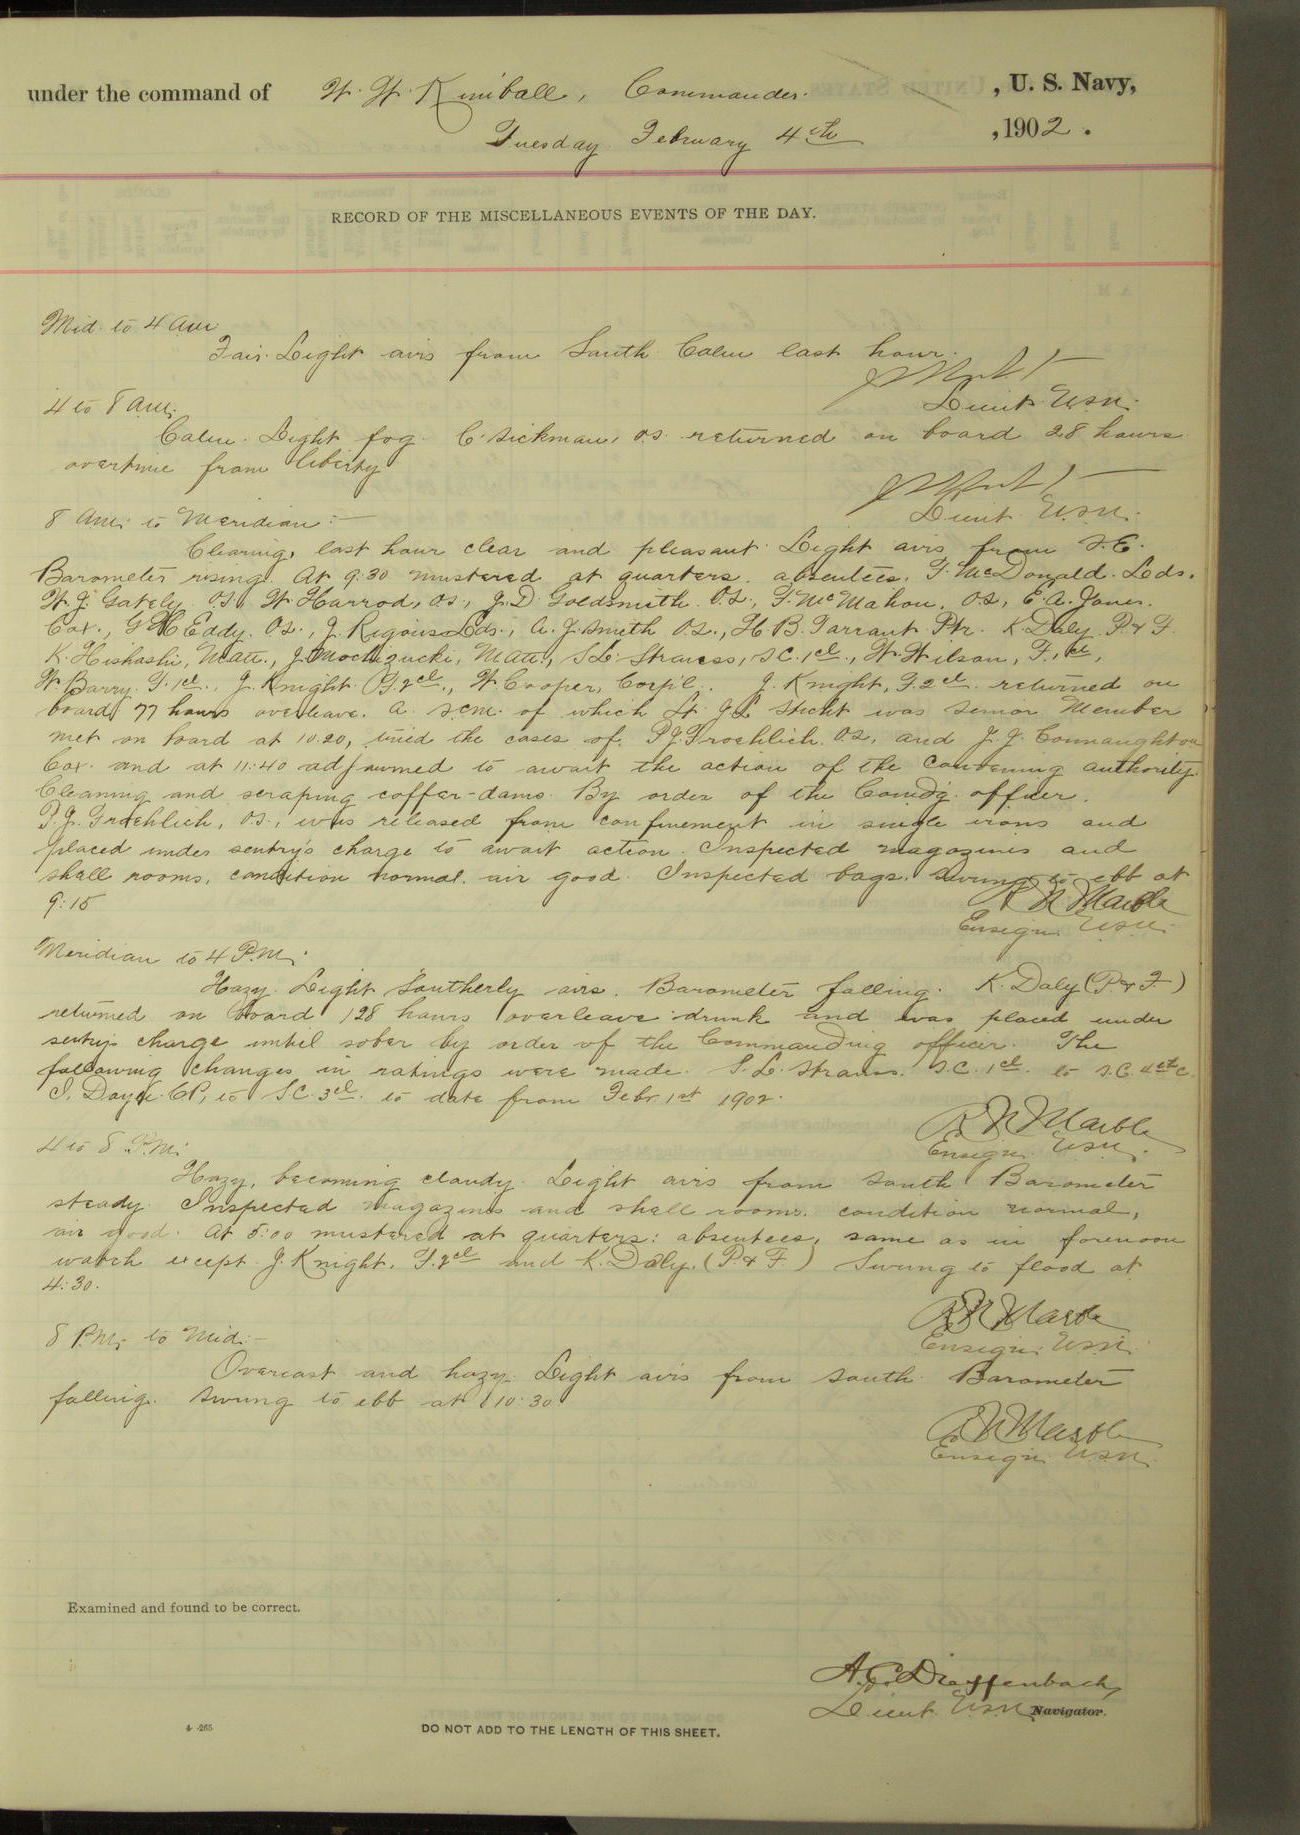 under the command of W. W. Kimball, Commander. , U. S. Navy,
Tuesday February 4th , 1902.
RECORD OF THE MISCELLANEOUS EVENTS OF THE DAY.
Mid. to 4 a.m.
Fair. Light airs from South. Calm last hour.
Lieut. U.S.N.
4 to 8 a.m.
Calm. Light fog. C. Sickman, O.S. returned on board 28 hours
overtime from liberty
Lieut. U.S.N.
8 a.m. to Meridian:—
Clearing, last hour clear and pleasant. Light airs from S.E.
Barometer rising. At 9:30 mustered at quarters. absentees. F. McDonald. Lds.
W. J. Gately O.S., W. Harrod, O.S., J. D. Goldsmith. O.S., F. McMahon, O.S., E. A. Jones.
Cox., G. H. Eddy. O.S., J. Rigois Lds., A. J. Smith O.S., H. B. Tarrant Ptr. K. Daly P. & F.
K. Hishashi, Matt., J. Mochizucki, Matt., S. L. Strauss, S.C. 1cl., W. Wilson, F. 1cl.,
W. Barry F. 1cl., J. Knight F. 2cl., W. Cooper, Corp'l. J. Knight, F. 2cl. returned on
board 77 hours overleave. A S.C.M. of which Lt. J. L. Sticht was Senior Member
met on board at 10.20, tried the cases of P. J. Froehlich. O.S. and J. J. Connaughton
Cox. and at 11:40 adjourned to await the action of the Convening authority.
Cleaning and scraping coffer-dams. By order of the Com'd'g. officer.
P. J. Froehlich, O.S., was released from confinement in single irons and
placed under sentry's charge to await action. Inspected magazines and
shell rooms, condition normal, air good. Inspected bags. Swung to ebb at
9:15
R N Marble
Ensign U.S.N.
Meridian to 4 P.M.
Hazy. Light Southerly airs. Barometer falling. K. Daly (P. & F.)
returned on board 128 hours overleave drunk and was placed under
sentry's charge until sober by order of the Commanding officer. The
following changes in ratings were made. S. L. Strauss. S.C. 1cl. to S.C. 4th c.
S. Doyle. C.P., to S.C. 3cl. to date from Febr. 1st 1902.
R N Marble
Ensign U.S.N.
4 to 8 P.M.
Hazy, becoming cloudy. Light airs from South Barometer
steady. Inspected magazines and shell rooms. condition normal,
air good. At 5:00 mustered at quarters: absentees, same as in forenoon
watch except J. Knight, F. 2cl and K. Daly. (P. & F.) Swung to flood at
4:30.
R N Marble
Ensign U.S.N.
8 P.M. to Mid:—
Overcast and hazy. Light airs from South. Barometer
falling. Swung to ebb at 10:30
R N Marble
Ensign U.S.N.
Examined and found to be correct.
A. C. Dieffenbach
Lieut. U.S.N. Navigator.
4—265
DO NOT ADD TO THE LENGTH OF THIS SHEET.